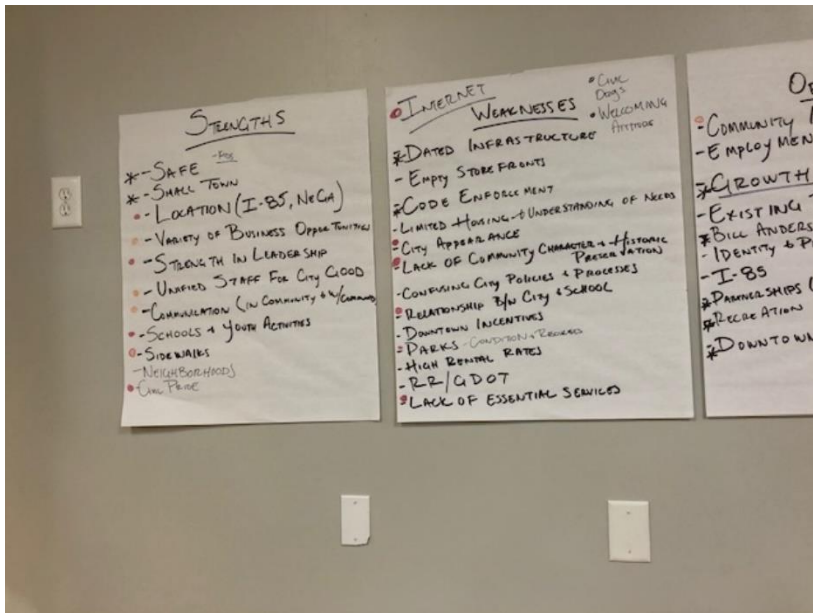 STRENGTHS
* - SAFE
* - SMALL TOWN
- LOCATION (I-85, NEGA)
- VARIETY OF BUSINESS OPPORTUNITIES
- STRENGTH IN LEADERSHIP
- UNIFIED STAFF FOR CITY GOOD
- COMMUNICATION (IN COMMUNITY & W/
- SCHOOLS & YOUTH ACTIVITIES
- SIDEWALKS
- NEIGHBORHOODS
- CIVIC PRIDE
INTERNET
WEAKNESSES
• CIVIC
• WELCOMING
ATTITUDE
* DATED INFRASTRUCTURE
- EMPTY STOREFRONTS
* CODE ENFORCEMENT
- LIMITED HOUSING & UNDERSTANDING OF NEEDS
- CITY APPEARANCE
- LACK OF COMMUNITY CHARACTER & HISTORIC
PRESERVATION
- CONFUSING CITY POLICIES & PROCESSES
- RELATIONSHIP B/W CITY & SCHOOL
- DOWNTOWN INCENTIVES
- PARKS - CONDITION &
- HIGH RENTAL RATES
- RR/GDOT
- LACK OF ESSENTIAL SERVICES
OP
- COMMUNITY
- EMPLOYMEN
* GROWTH
- EXISTING
* BILL ANDERS
- IDENTITY & P
- I-85
* PARTNERSHIPS (
* RECREATION
* DOWNTOWN